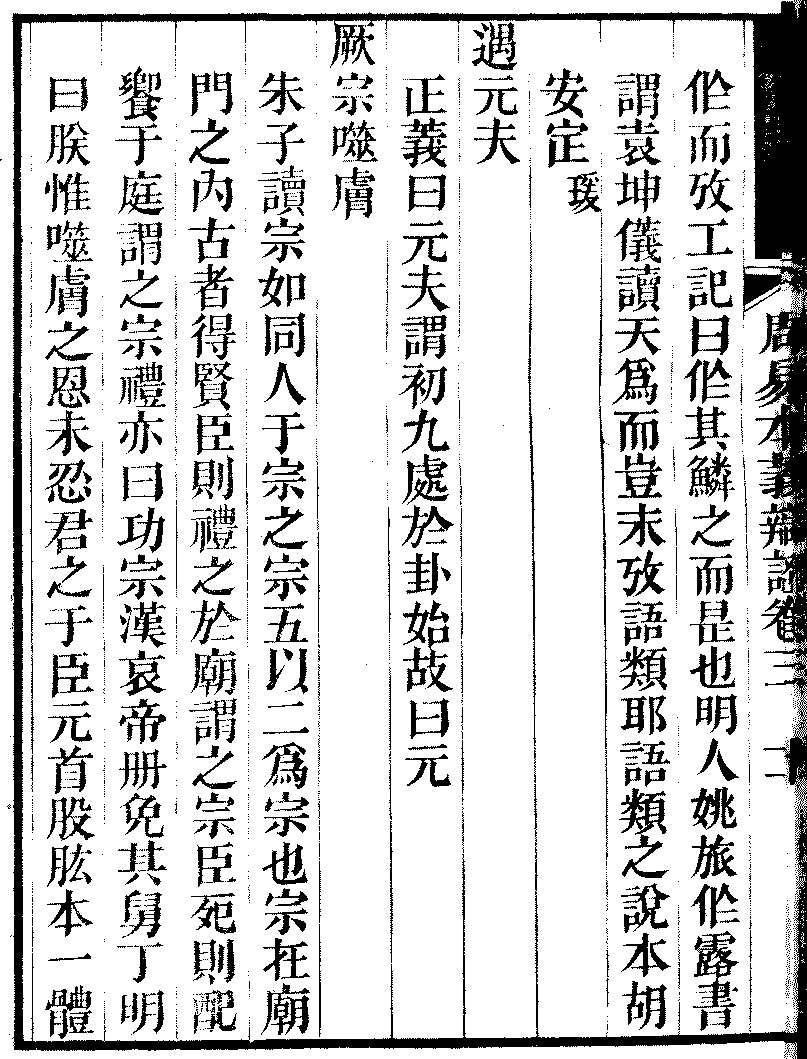 周易本義辯證卷三
作而攷工記曰作其鱗之而是也明人姚旅作露書
謂袁坤儀讀天爲而豈未攷語類耶語類之說本胡
安定瑗
遇元夫
正義曰元夫謂初九處於卦始故曰元
厥宗噬膚
朱子讀宗如同人于宗之宗五以二爲宗也宗在廟
門之內古者得賢臣則禮之於廟謂之宗臣死則配
饗于庭謂之宗禮亦曰功宗漢哀帝册免其舅丁明
曰朕惟噬膚之恩未忍君之于臣元首股肱本一體